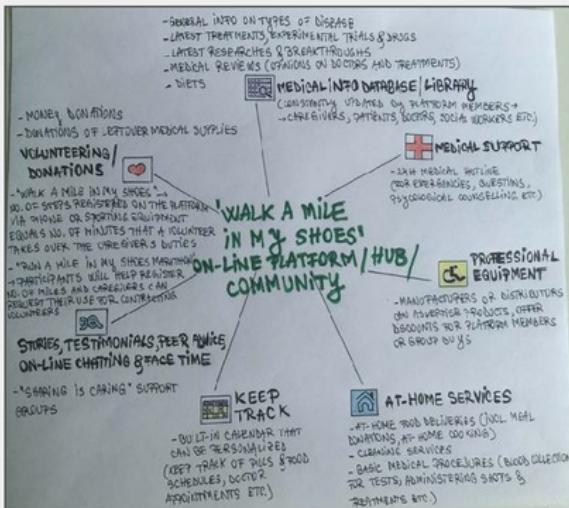 - GENERAL INFO ON TYPES OF DISEASE
- LATEST TREATMENTS, EXPERIMENTAL TRIALS & DRUGS
- LATEST RESEARCHES & BREAKTHROUGHS
- MEDICAL REVIEWS (OPINIONS ON DOCTORS AND TREATMENTS)
- DIETS
MEDICAL INFO DATABASE/LIBRARY
(CONSTANTLY UPDATED BY PLATFORM MEMBERS →
→ CAREGIVERS, PATIENTS, DOCTORS, SOCIAL WORKERS ETC.)
MEDICAL SUPPORT
- 24H MEDICAL HOTLINE
(FOR EMERGENCIES, QUESTIONS,
PSYCOLOGICAL COUNSELLING ETC)
PROFESSIONAL
EQUIPMENT
- MANUFACTURERS OR DISTRIBUTORS
CAN ADVERTISE PRODUCTS, OFFER
DISCOUNTS FOR PLATFORM MEMBERS
OR GROUP BUYS
AT-HOME SERVICES
- AT-HOME FOOD DELIVERIES (INCL. MEAL
DONATIONS, AT HOME COOKING)
- CLEANING SERVICES
- BASIC MEDICAL PROCEDURES (BLOOD COLLECTION
FOR TESTS, ADMINISTERING SHOTS &
TREATMENTS ETC.)
KEEP
TRACK
- BUILT-IN CALENDAR THAT
CAN BE PERSONALIZED
(KEEP TRACK OF PILLS & FOOD
SCHEDULES, DOCTOR
APPOINTMENTS ETC.)
STORIES, TESTIMONIALS, PEER ADVICE,
ON-LINE CHATTING & FACE TIME
- "SHARING IS CARING" SUPPORT
GROUPS
- MONEY DONATIONS
- DONATIONS OF LEFTOVER MEDICAL SUPPLIES
VOLUNTEERING/
DONATIONS
- "WALK A MILE IN MY SHOES" →
NO. OF STEPS REGISTERED ON THE PLATFORM
VIA PHONE OR SPORTING EQUIPMENT
EQUALS NO. OF MINUTES THAT A VOLUNTEER
TAKES OVER THE CAREGIVER'S DUTIES
- "RUN A MILE IN MY SHOES MARATHON"
→ PARTICIPANTS WILL HELP REGISTER
NO. OF MILES AND CAREGIVERS CAN
REQUEST THEIR USE FOR CONTACTING
VOLUNTEERS
'WALK A MILE
IN MY SHOES'
ON-LINE PLATFORM/HUB/
COMMUNITY